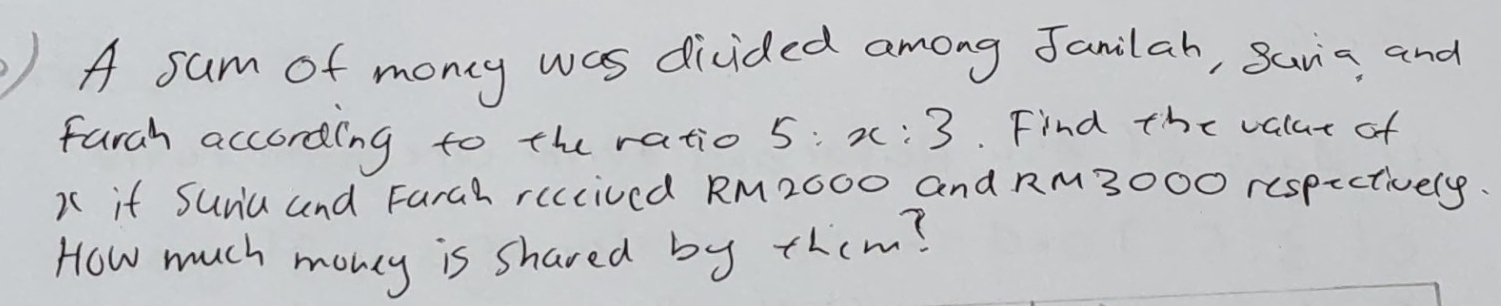 ) A sum of money was divided among Jamilah, Suria and
Farah according to the ratio 5 : x : 3. Find the value of
x if Suria and Farah received RM2000 and RM3000 respectively.
How much money is shared by them?